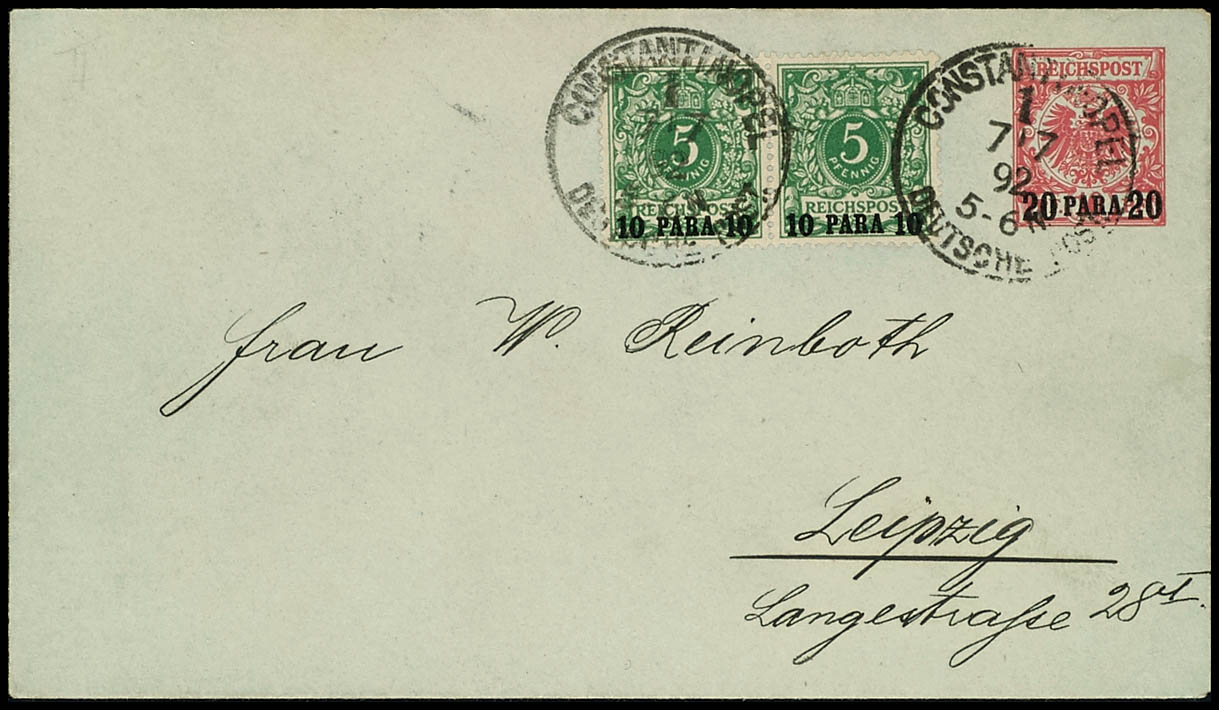 CONSTANTINOPEL
1
7 17
92
DEUTSCHE POST
5
PFENNIG
REICHSPOST
10 PARA 10
5
PFENNIG
REICHSPOST
10 PARA 10
CONSTANTINOPEL
1
7 17
92
5-6N
DEUTSCHE POST
REICHSPOST
20 PARA 20
Frau W. Reinboth
Leipzig
Langestraße 28 I.